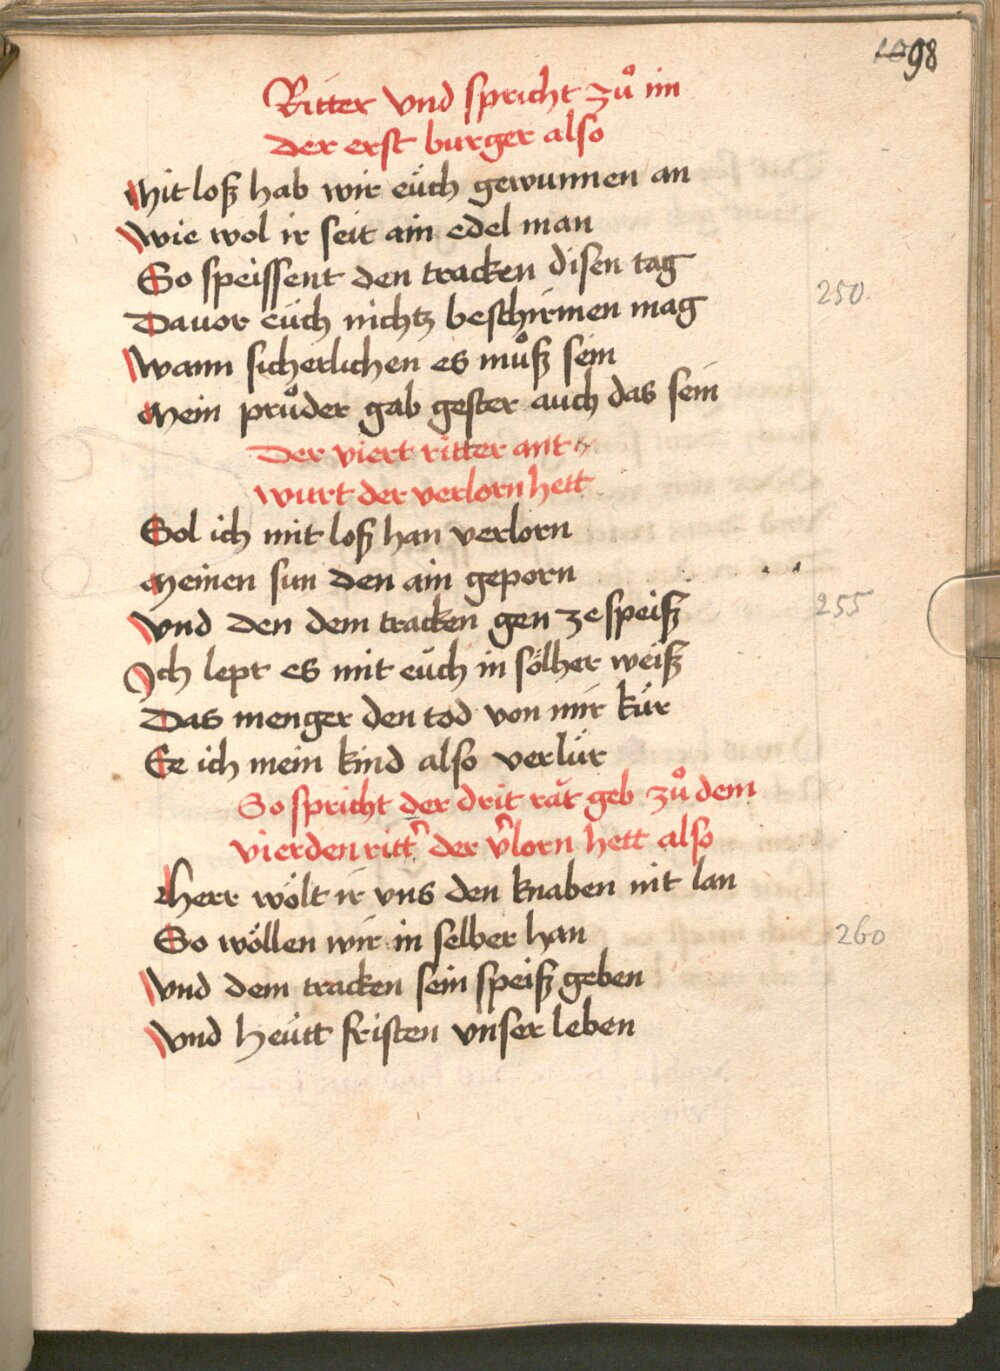 1098
Ritter vnd spricht zuͦ im
der erst burger also
Mit loß hab wir eüch gewunnen an
Wie wol ir seit ain edel man
So speissent den tracken disen tag
250.
Dauor eüch nichtz beschirmen mag
Wann sicherlichen es muͦß sein
Mein pruͦder gab gester auch das sein
Der viert ritter ant
wurt der verlorn hett
Sol ich mit loß han verlorn
Meinen sun den ain geporn
Vnd den dem tracken gen ze speiß
255
Ich lept es mit eüch in sölher weiß
Das menger den tod von mir kür
Ee ich mein kind also verlür
So spricht der drit rät geb zuͦ dem
vierden ritt͛ der v͛lorn hett also
Herr wölt ir vns den knaben nit lan
So wöllen wir in selber han
260
Vnd dem tracken sein speiß geben
Vnd heütt fristen vnser leben